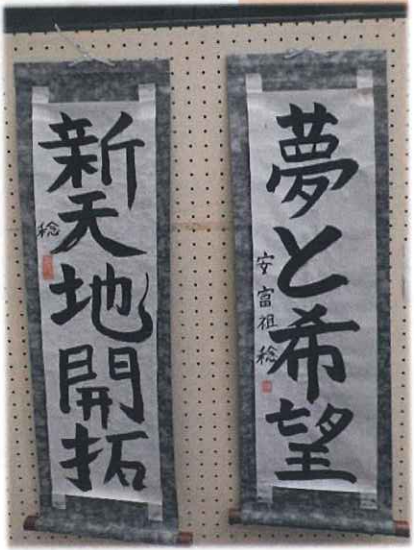 夢と希望
安富祖稔
新天地開拓
稔